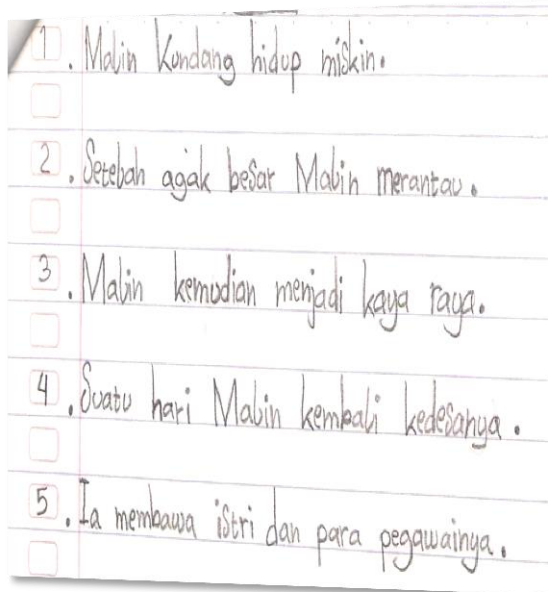 1. Malin Kundang hidup miskin.
2. Setelah agak besar Malin merantau.
3. Malin kemudian menjadi kaya raya.
4. Suatu hari Malin kembali kedesanya.
5. Ia membawa istri dan para pegawainya.